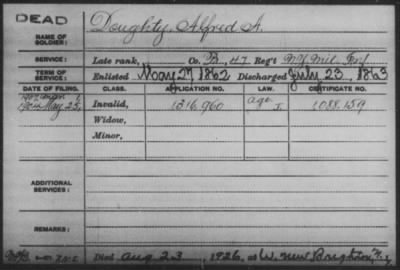 DEAD
NAME OF SOLDIER: Doughty, Alfred A.
SERVICE: Late rank, Co. B, 47 Reg't N.Y. Mil. Inf.
TERM OF SERVICE: Enlisted May 27 1862 Discharged July 23, 1863
DATE OF FILING. CLASS. APPLICATION NO. LAW. CERTIFICATE NO.
May 25, Invalid, 1316.960 age 1.088.159
Widow,
Minor,
ADDITIONAL SERVICES:
REMARKS:
Died Aug 23, 1926, at W. New Brighton, N.Y.